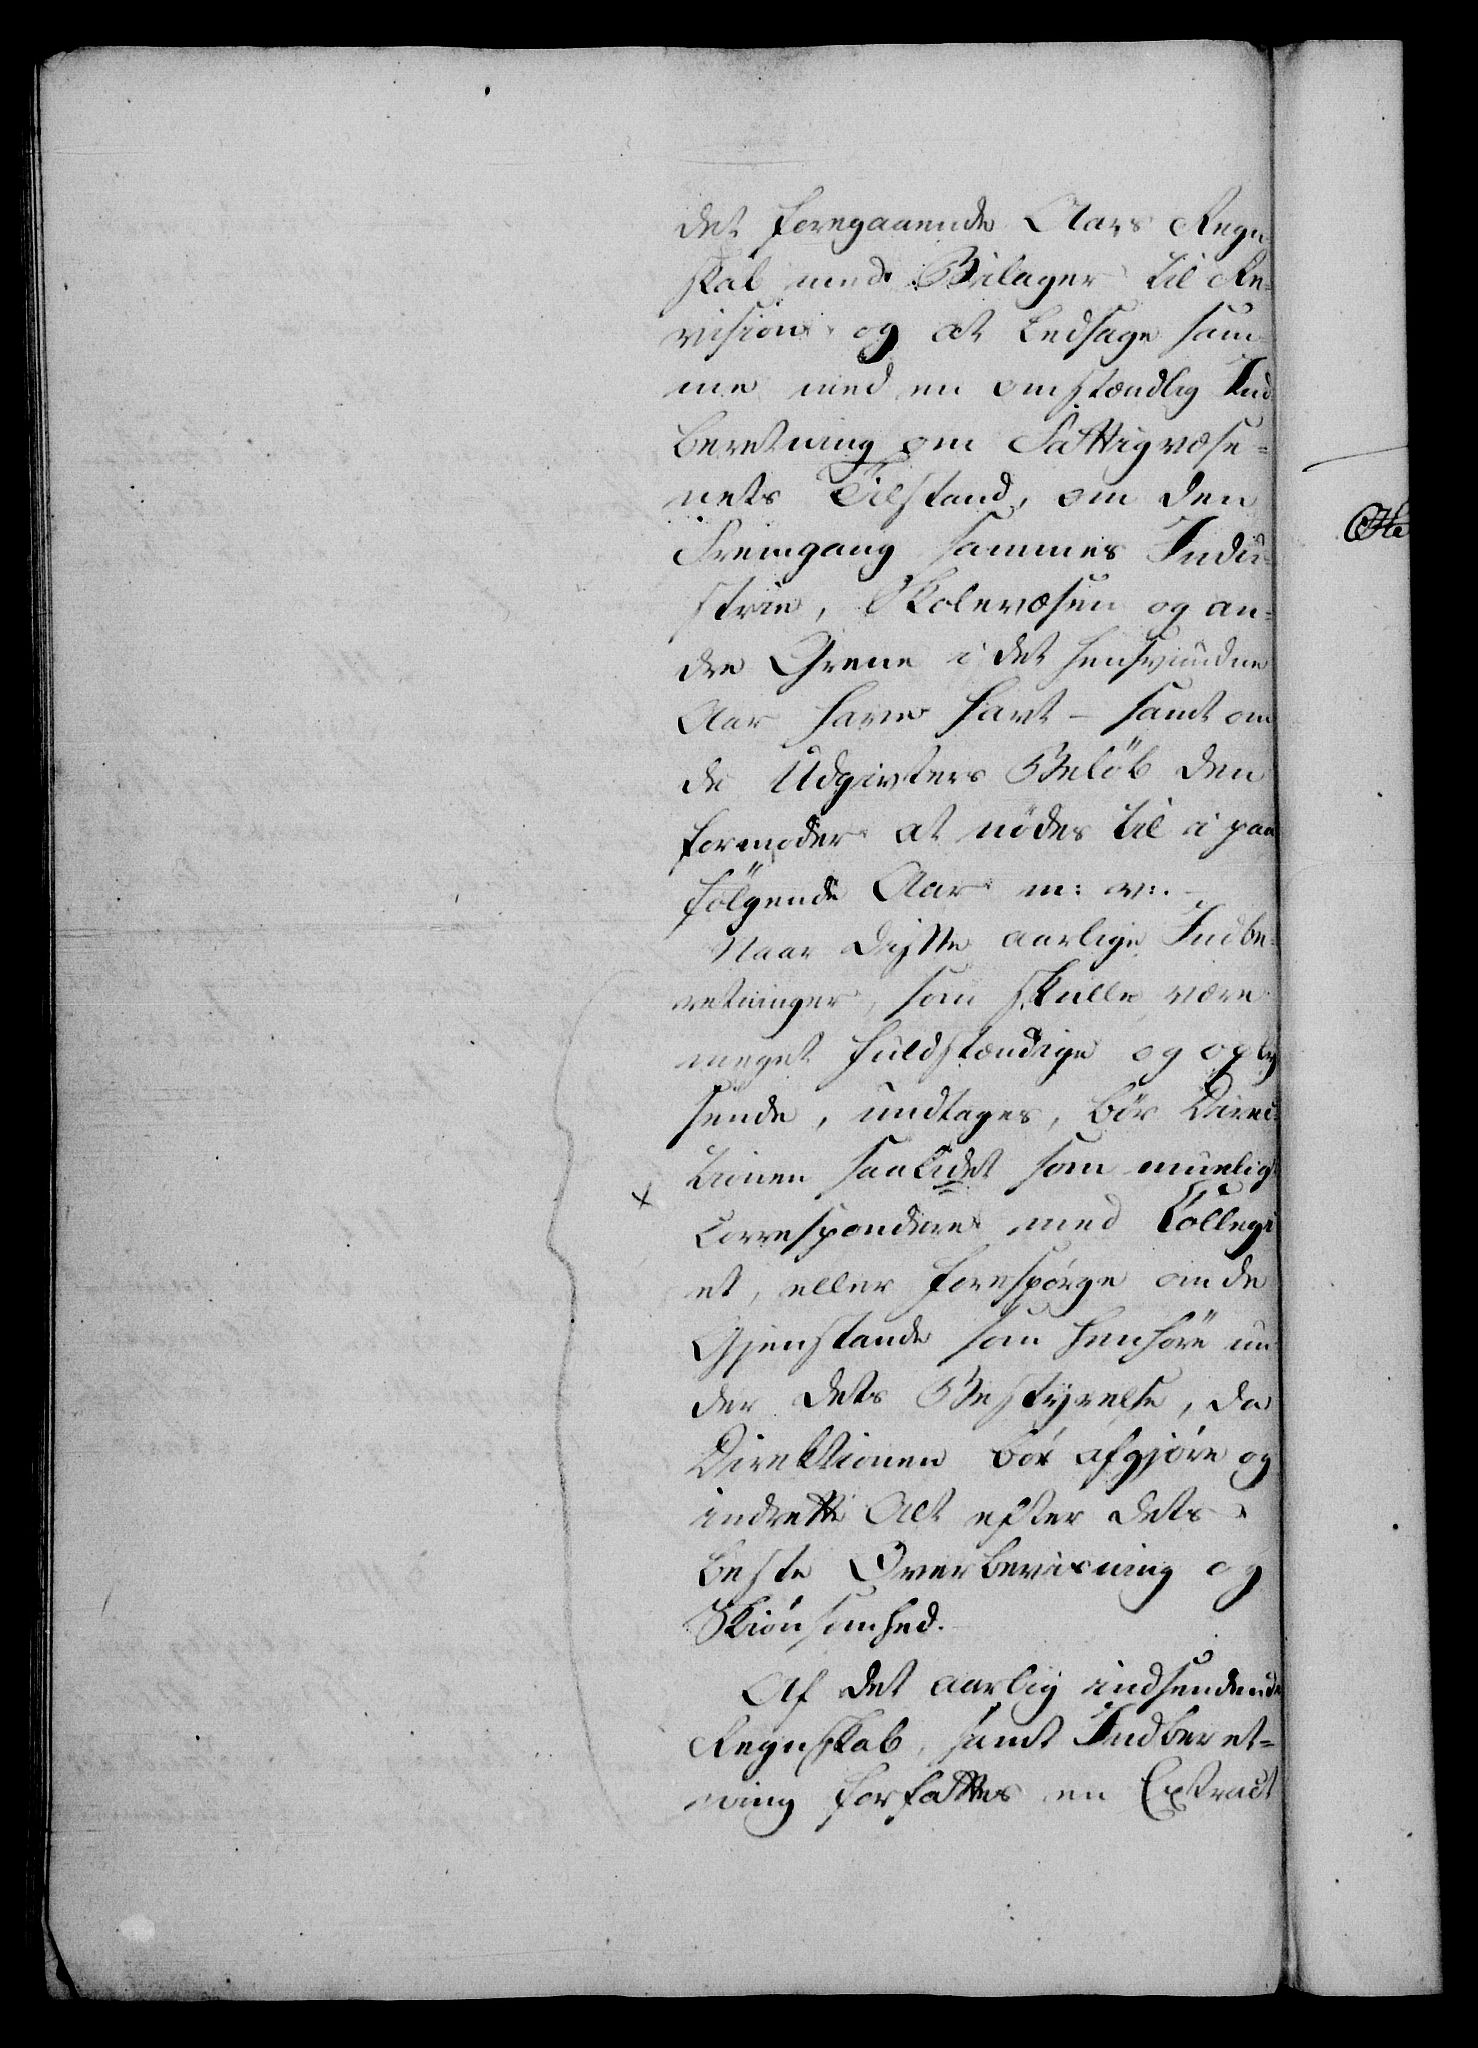 det foregaaende Aars Regn
skab med Bilager til Re-
vision og at ledsage sam
me med en omstændlig Ind
beretning om Fattigvæse-
nets Tilstand, om den
Fremgang sammes Indu-
strie, Skolevæsen og an-
dre Grene i det hensvundne
Aar have havt - samt om
de Udgivters Beløb den
formoder at nødes til i paa
følgende Aar m: v:.
Naar disse aarlige Indbe-
retninger, som skulle være
meget fuldstændige og oply
sende, undtages, bör Direc-
tionen saalidet som muelig
x
correspondere med Collegi
et, eller forespørge om de
Gjenstande som henhøre un
der dets Bestyrelse, da
Direktionen bör afgjøre og
indrette Alt efter dets
beste Overbeviisning og
Skiønsomhed.
Af det aarlig indsendende
Regnskab, samt Indberet-
ning forfattes en Extract